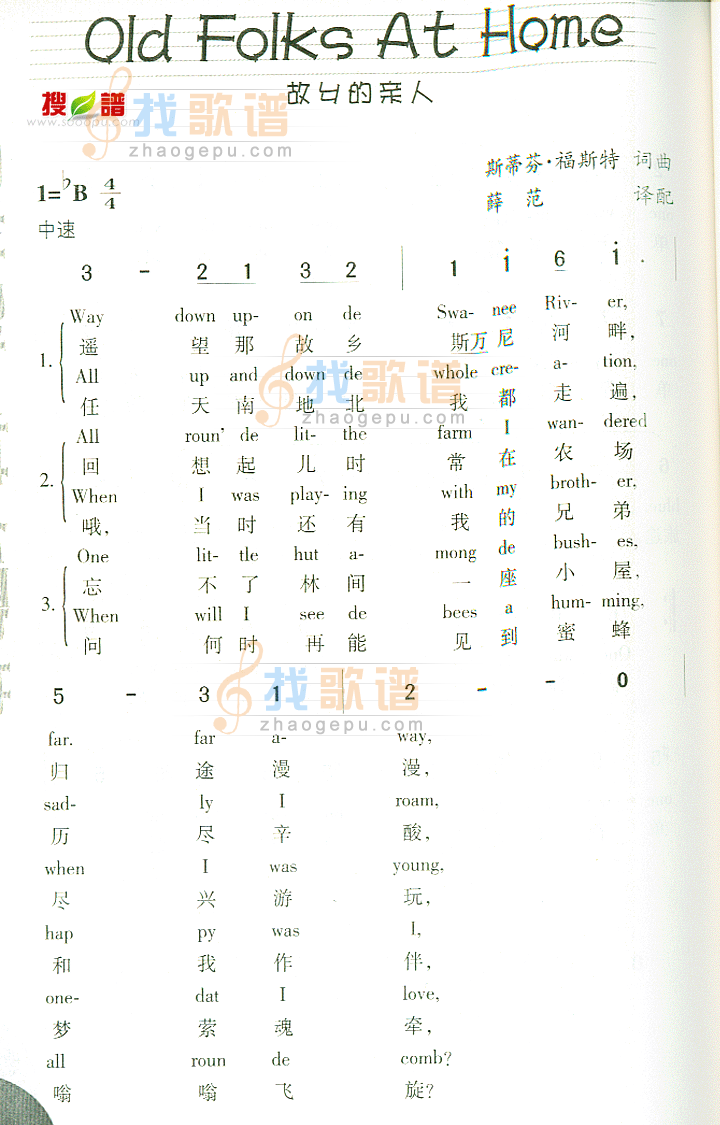 Old Folks At Home
故乡的亲人
搜 谱
www.sooopu.com
找歌谱
zhaogepu.com
斯蒂芬·福斯特 词曲
薛 范 译配
1=♭B 4/4
中速
3 - 2 1 3 2 | 1 i 6 i .
1.
Way down up- on de Swa- nee Riv- er,
遥 望 那 故 乡 斯万 尼 河 畔,
All up and down de whole cre- a- tion,
任 天 南 地 北 我 都 走 遍,
找歌谱
zhaogepu.com
2.
All roun' de lit- the farm I wan- dered
回 想 起 儿 时 常 在 农 场
When I was play- ing with my broth- er,
哦, 当 时 还 有 我 的 兄 弟
3.
One lit- tle hut a- mong de bush- es,
忘 不 了 林 间 一 座 小 屋,
When will I see de bees a hum- ming,
问 何 时 再 能 见 到 蜜 蜂
找歌谱
zhaogepu.com
5 - 3 1 | 2 - - 0
far. far a- way,
归 途 漫 漫,
sad- ly I roam,
历 尽 辛 酸,
when I was young,
尽 兴 游 玩,
hap py was I,
和 我 作 伴,
one- dat I love,
梦 萦 魂 牵,
all roun de comb?
嗡 嗡 飞 旋?